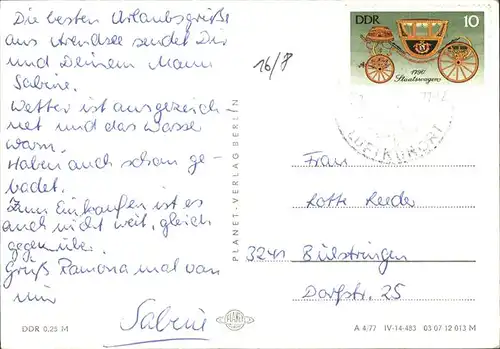 Die besten Urlaubsgrüße
aus Arendsee sendet Dir
und Deinem Mann
Sabine.
Wetter ist ausgezeich
net und das Wasser
warm.
Haben auch schon ge-
badet.
Zum Einkaufen ist es
auch nicht weit, gleich
gegenüber.
Grüß Ramona mal von
mir
Sabine
DDR 0,25 M
16/8
PLANET-VERLAG BERLIN
PLANET
DDR 10
1790
Staatswagen
LUFTKURORT
Frau
Lotte Reeder
3241 Bülstringen
Dorfstr. 25
A 4/77 IV-14-483 03 07 12 013 M